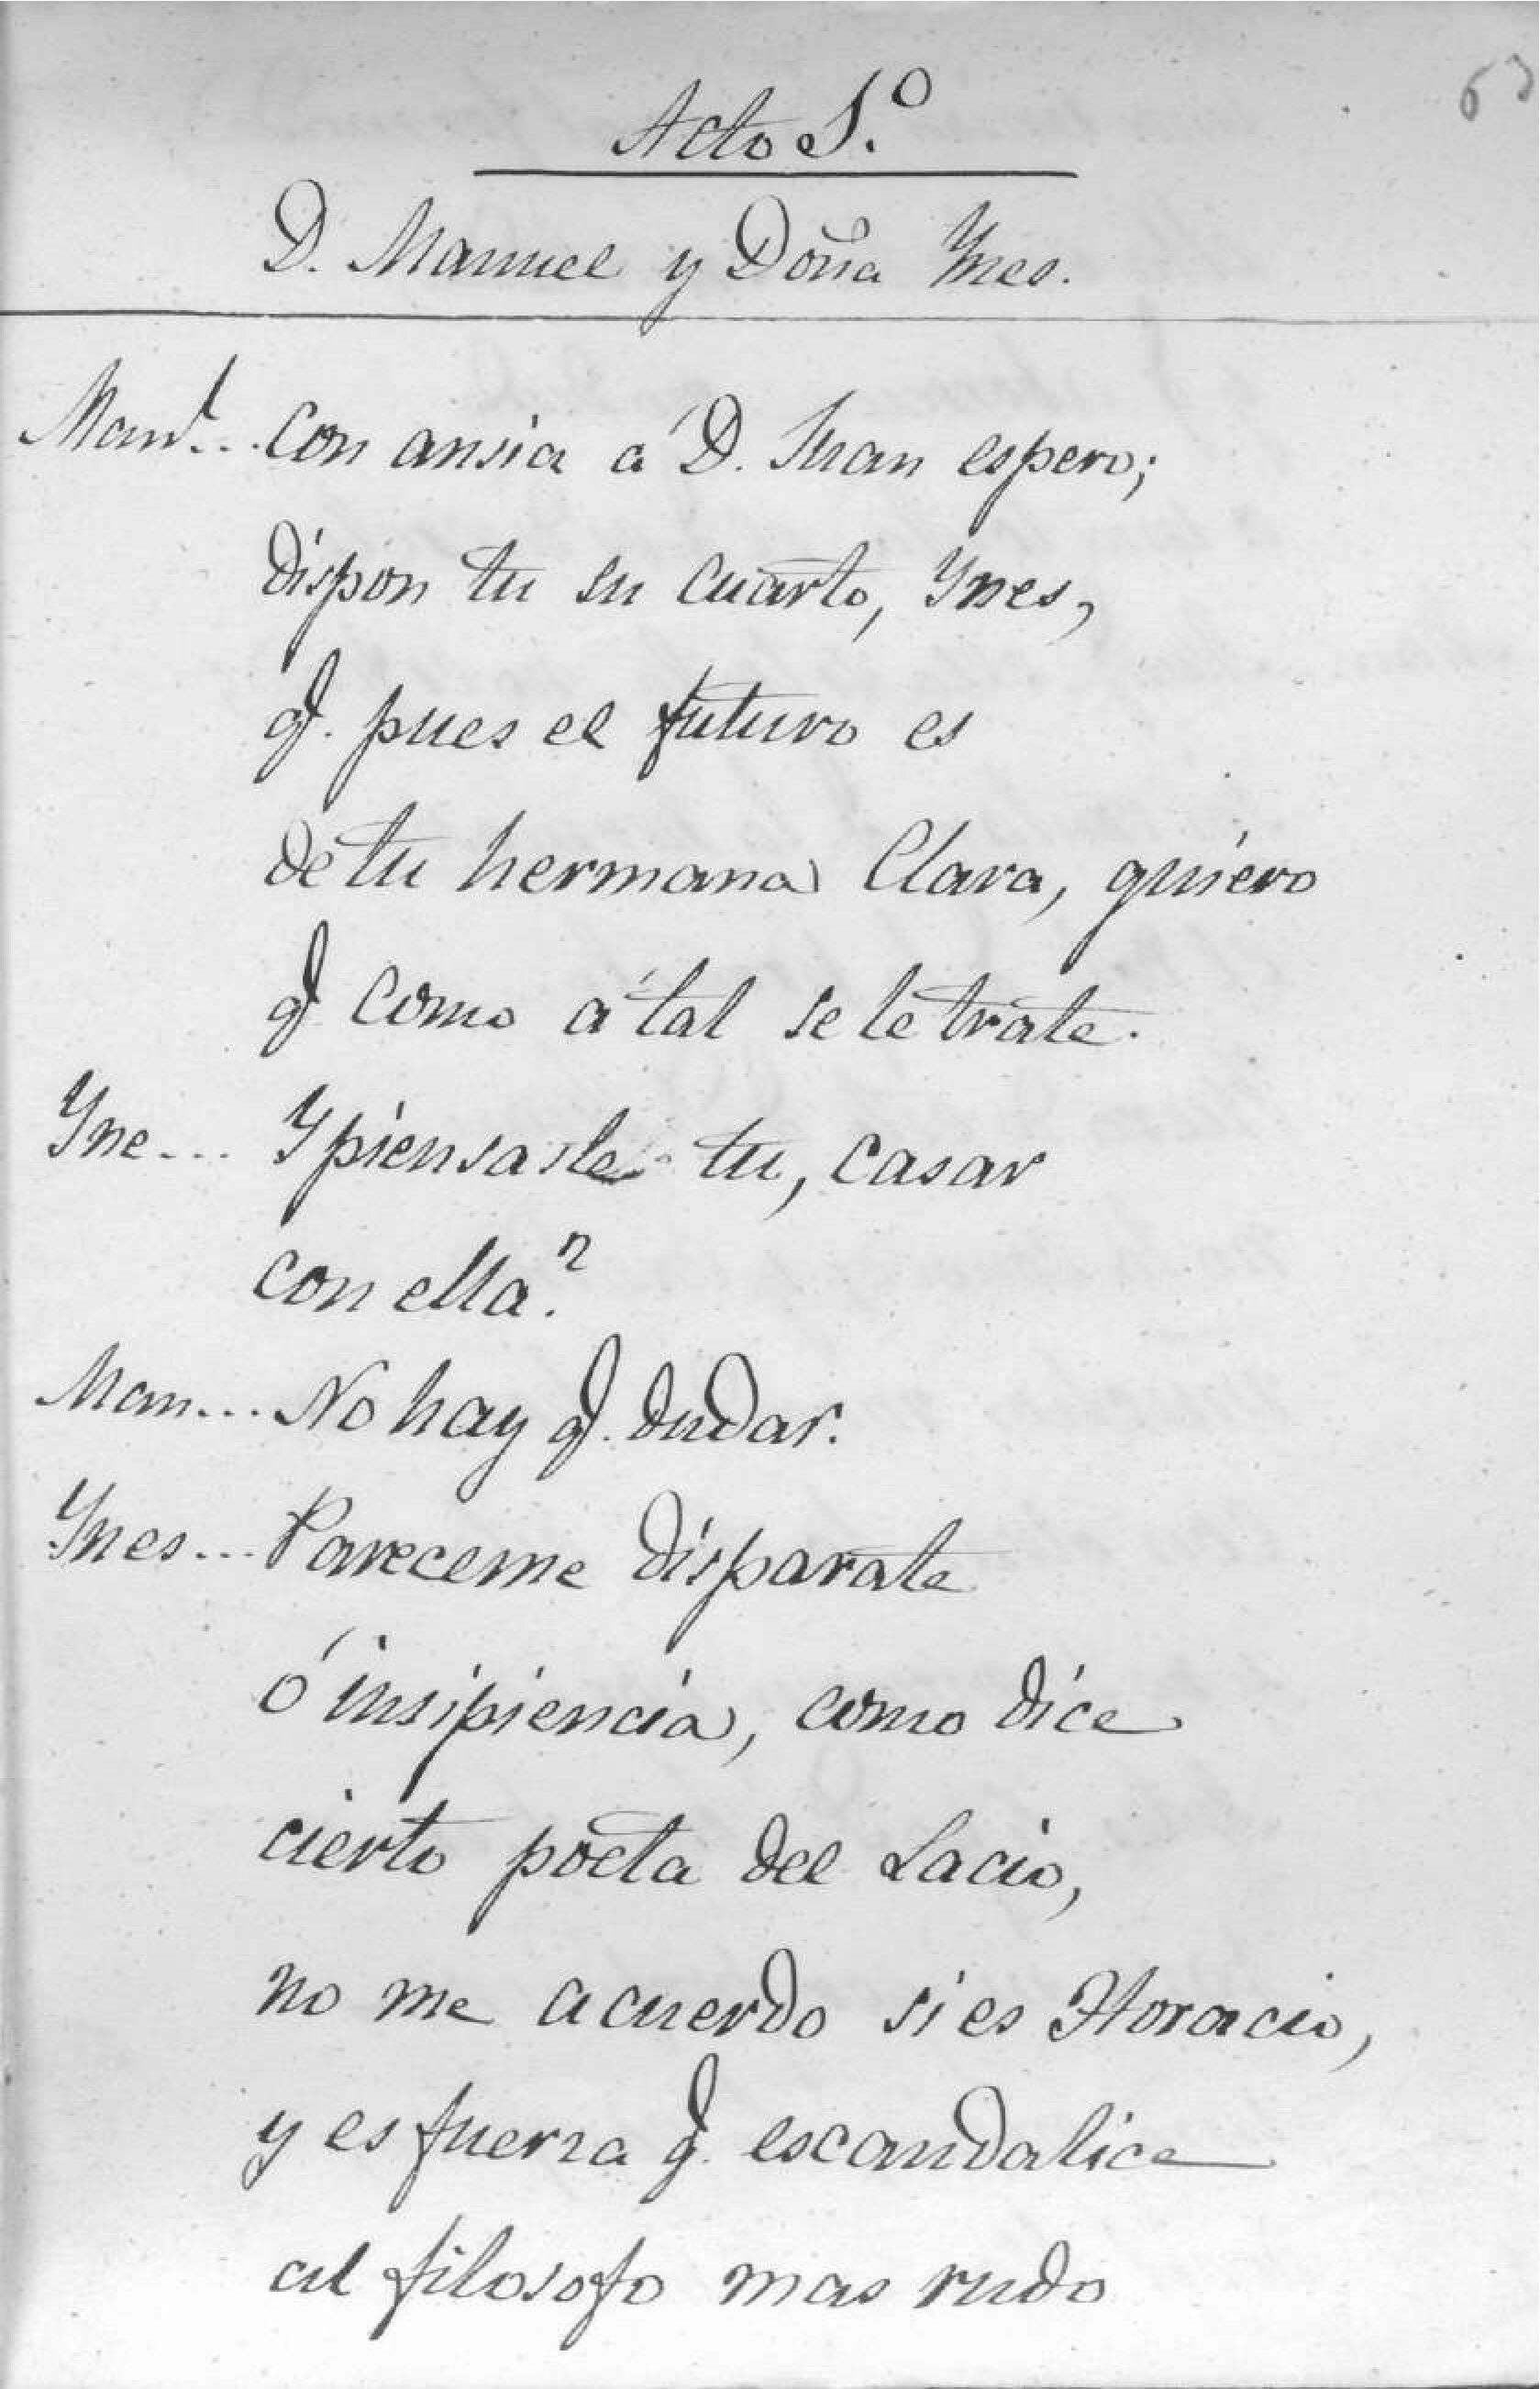 63
Acto 1.º
D. Manuel y Doña Ynes.
Man.l... Con ansia á D. Juan espero;
dispon tu su cuarto, Ynes,
q.e pues el futuro es
de tu hermana Clara, quiero
q.e como á tal se le trate.
Yne... Y piensasle tu, casar
con ella?
Man... No hay q.e dudar.
Ynes... Pareceme disparate
ó insipiencia, como dice
cierto poeta del Lacio,
no me acuerdo si es Horacio,
y es fuerza q.e escandalice
al filosofo mas rudo